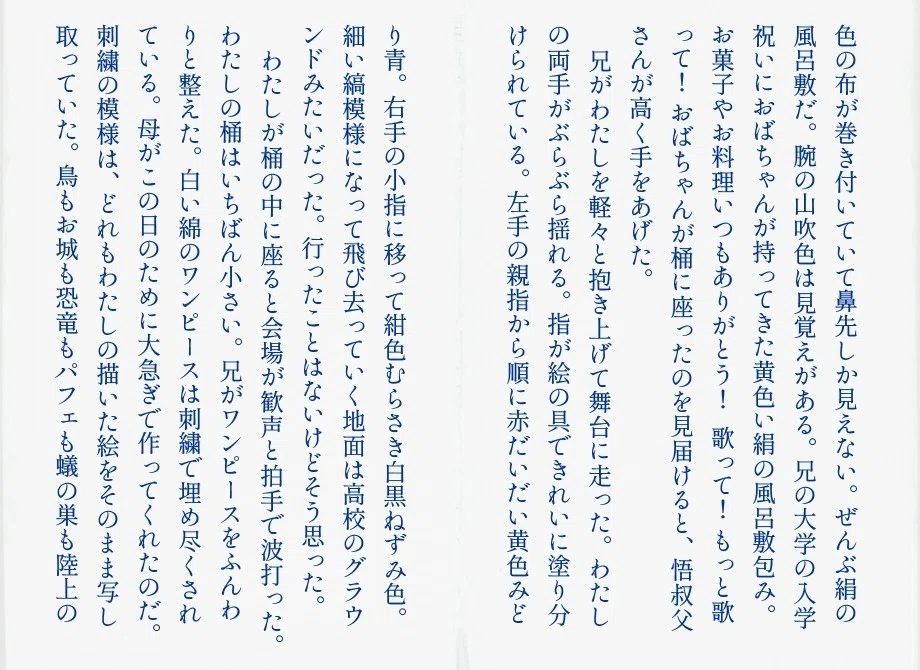 色の布が巻き付いていて鼻先しか見えない。ぜんぶ絹の
風呂敷だ。腕の山吹色は見覚えがある。兄の大学の入学
祝いにおばちゃんが持ってきた黄色い絹の風呂敷包み。
お菓子やお料理いつもありがとう！　歌って！　もっと歌
って！　おばちゃんが桶に座ったのを見届けると、悟叔父
さんが高く手をあげた。
　兄がわたしを軽々と抱き上げて舞台に走った。わたし
の両手がぶらぶら揺れる。指が絵の具できれいに塗り分
けられている。左手の親指から順に赤だいだい黄色みど
り青。右手の小指に移って紺色むらさき白黒ねずみ色。
細い縞模様になって飛び去っていく地面は高校のグラウ
ンドみたいだった。行ったことはないけどそう思った。
　わたしが桶の中に座ると会場が歓声と拍手で波打った。
わたしの桶はいちばん小さい。兄がワンピースをふんわ
りと整えた。白い綿のワンピースは刺繍で埋め尽くされ
ている。母がこの日のために大急ぎで作ってくれたのだ。
刺繍の模様は、どれもわたしの描いた絵をそのまま写し
取っていた。鳥もお城も恐竜もパフェも蟻の巣も陸上の